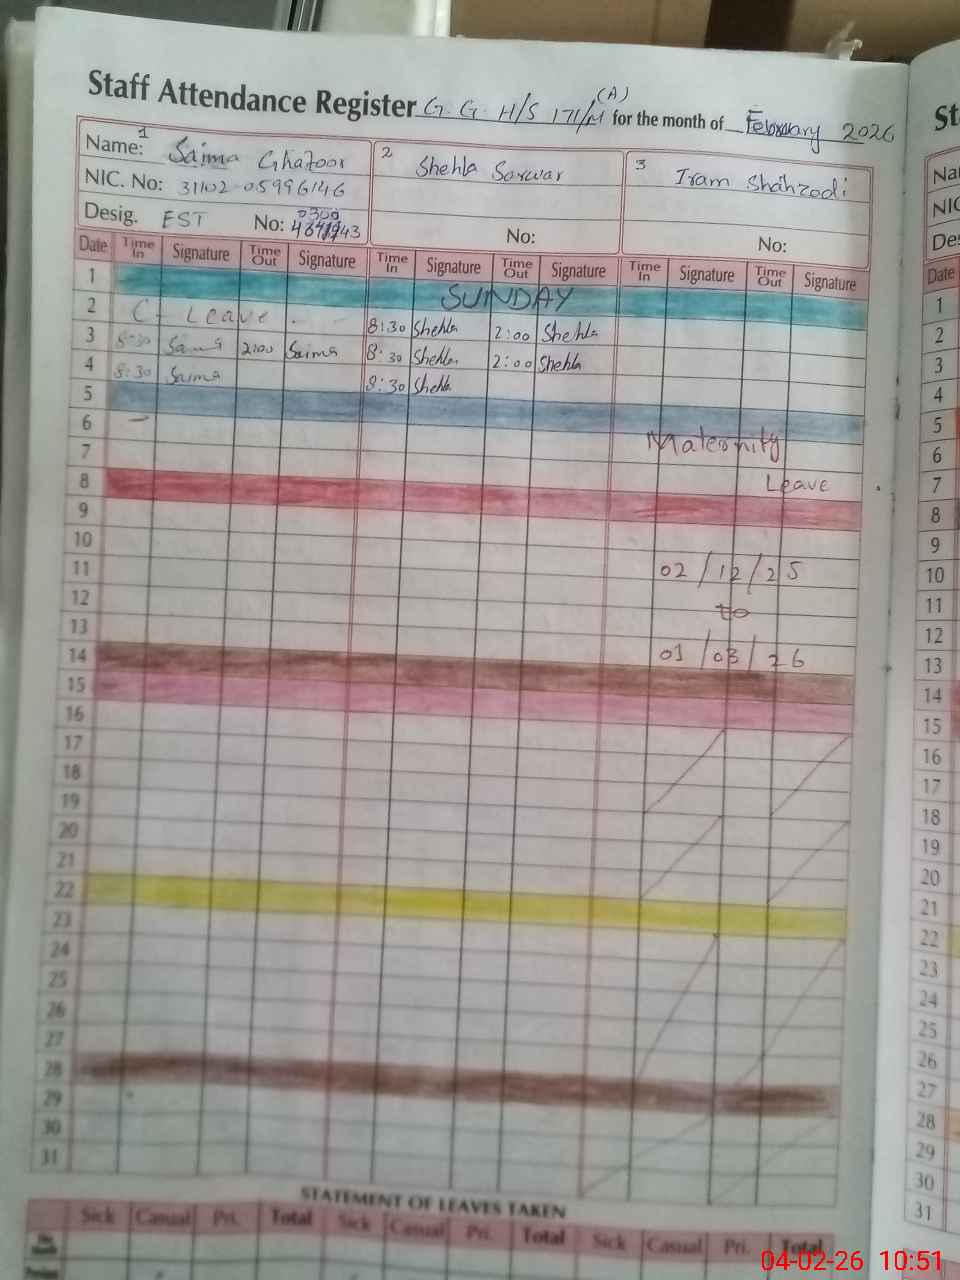 Staff Attendance Register G.G.H/S 171/M (A) for the month of February 2026
Name: 1 Saima Ghafoor 2 Shehla Sarwar 3 Iram Shahzadi
NIC. No: 31102-05996146
Desig. EST No: 0300 No: No:
Date Time In Signature Time Out Signature Time In Signature Time Out Signature Time In Signature Time Out Signature
1 SUNDAY
2 C- Leave 8:30 Shehla 2:00 Shehla
3 8:30 Saima 2:00 Saima 8:30 Shehla 2:00 Shehla
4 8:30 Saima 8:30 Shehla
5
6 Maternity
7 Leave
8
9
10
11 02/12/25
12 to
13
14 01/03/26
15
16
17
18
19
20
21
22
23
24
25
26
27
28
29
30
31
STATEMENT OF LEAVES TAKEN
Sick Casual Pri. Total Sick Casual Pri. Total Sick Casual Pri. Total
St
Na
NIC
De
Date
1
2
3
4
5
6
7
8
9
10
11
12
13
14
15
16
17
18
19
20
21
22
23
24
25
26
27
28
29
30
31
04-02-26 10:51